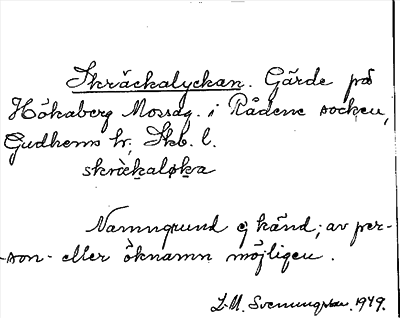 Skräckalyckan. Gärde på
Hökaberg Mossåg. i Rådene socken,
Gudhems hr, Skb. l.
skràckaløka
Namngrund ej känd; av per-
-son- eller öknamn möjligen.
L.M. Svenungsson. 1949.